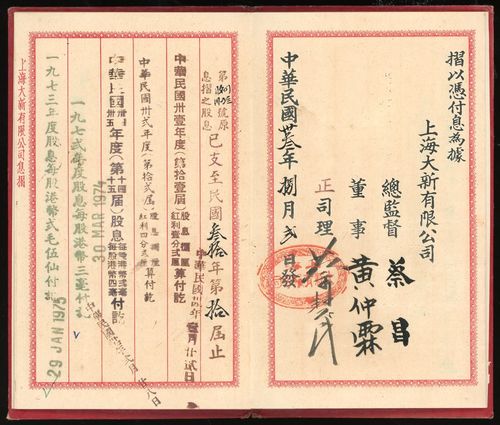 摺以憑付息為據
上海大新有限公司
總監督 蔡昌
董事 黃仲霖
正司理
中華民國卅叁年捌月弍日發
息摺之股息已支至民國叁拾年第拾屆止
中華民國卅壹年度(第拾壹屆)股息 紅利壹分弍厘算付訖
中華民國卅弍年度(第拾弍屆)股息 紅利四分弍厘算付訖
中華民國卅四卅五年度(第十四十五屆)股息每股港幣四毫付訖
一九七弍年度股息每股港幣三毫付訖
30 MAR 1974
一九七三年度股息每股港幣弍毛伍仙付訖
29 JAN 1975
上海大新有限公司息摺